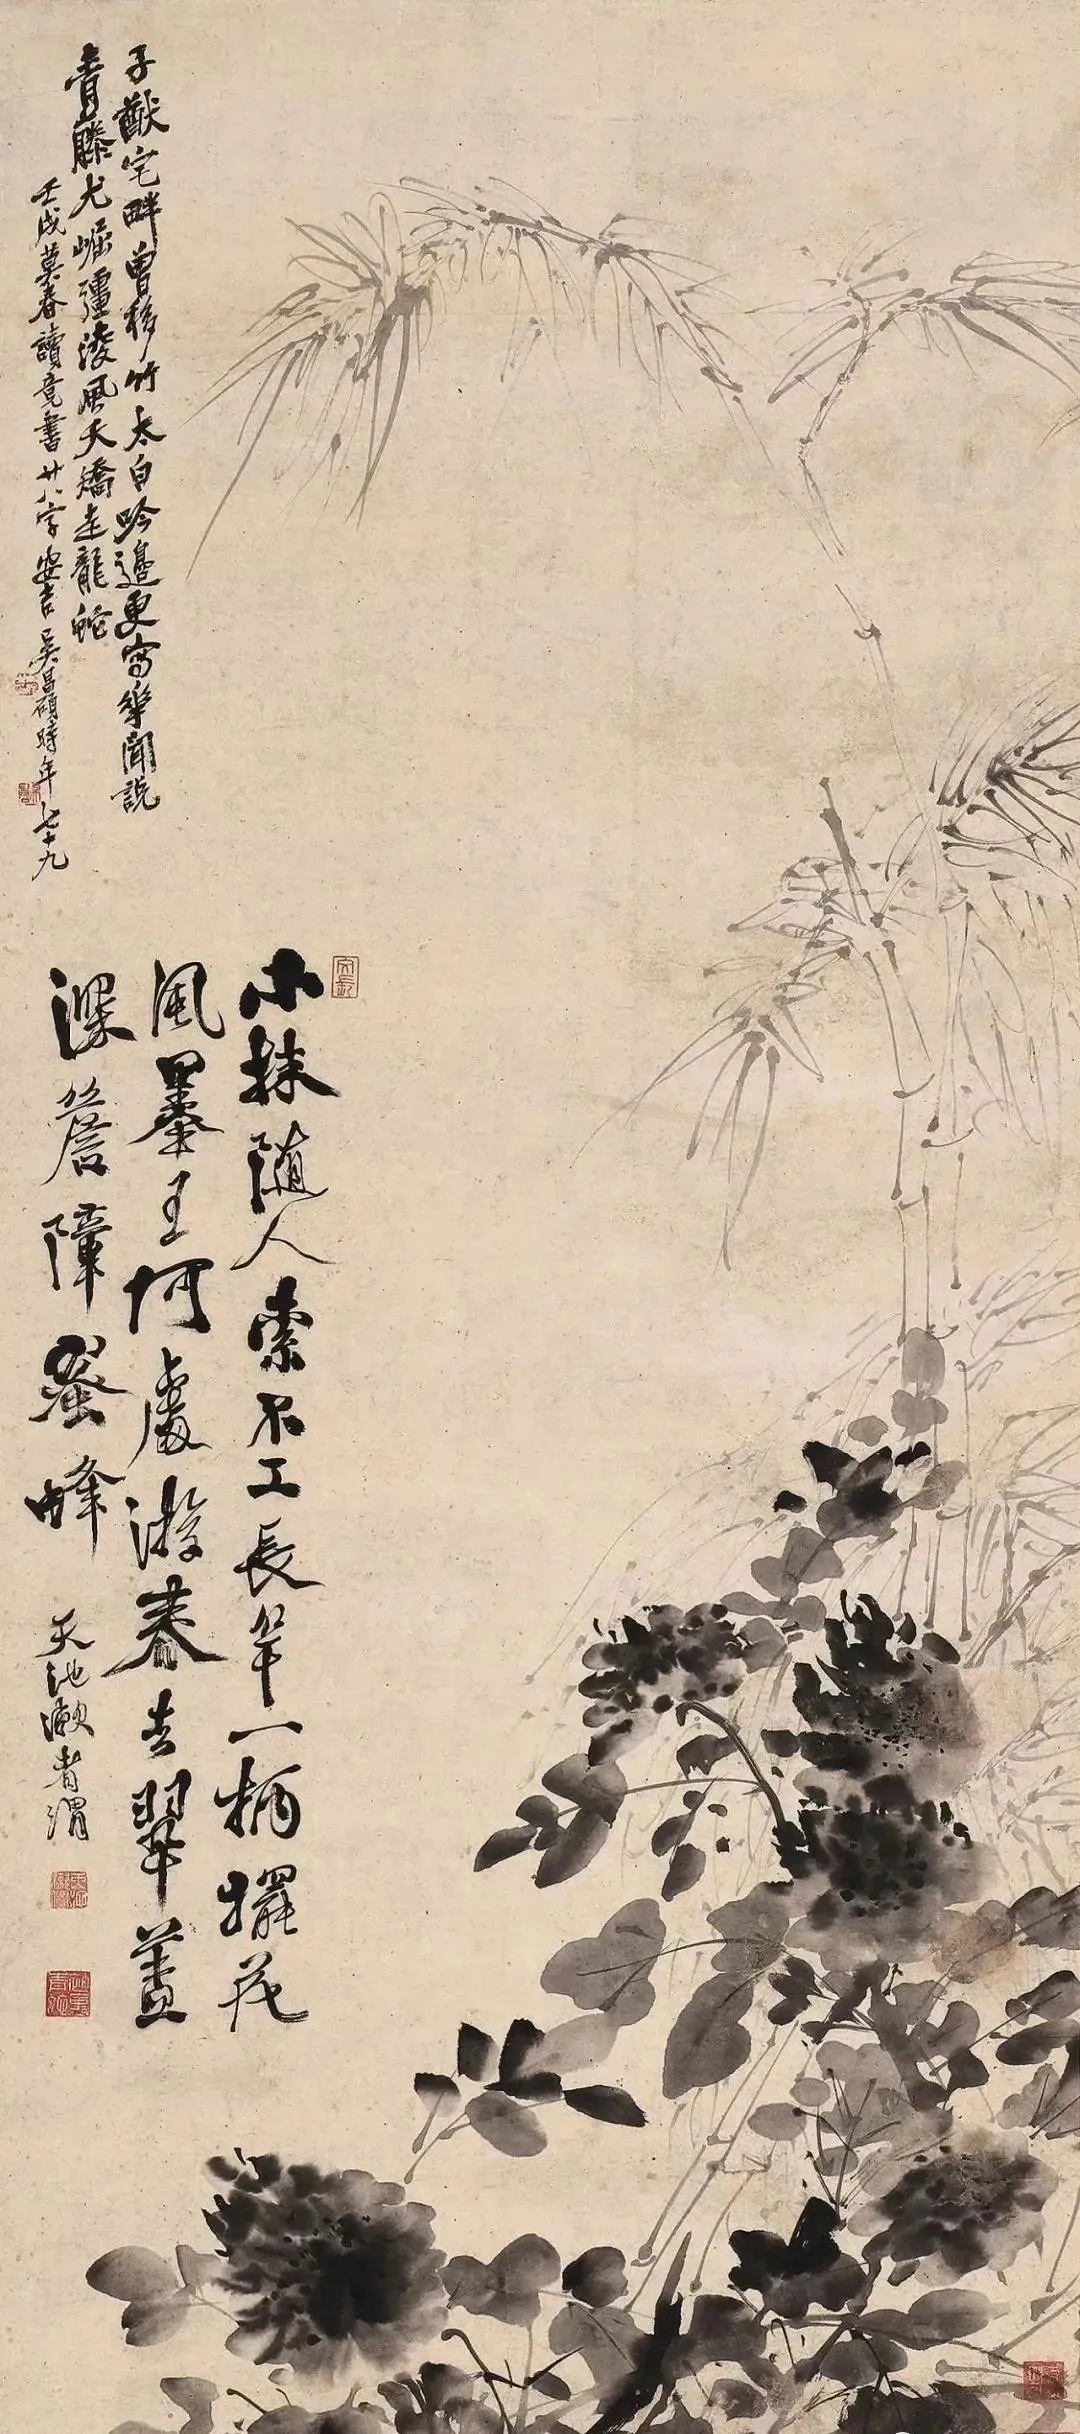 子猷宅畔曾移竹太白吟邊更寫華聞說
青藤尤崛彊淩風夭矯走龍蛇
壬戌莫春讀竟書廿八字安吉吳昌碩時年七十九
文長
小抹隨人索不工長竿一柄擺茂
風墨王何處游春去翠蓋
深簷障蜜蜂
天池漱者渭